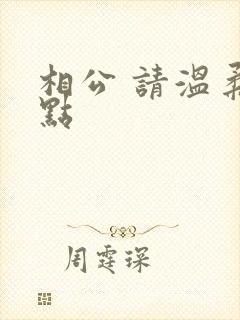 相公 請溫柔
點
周霆琛